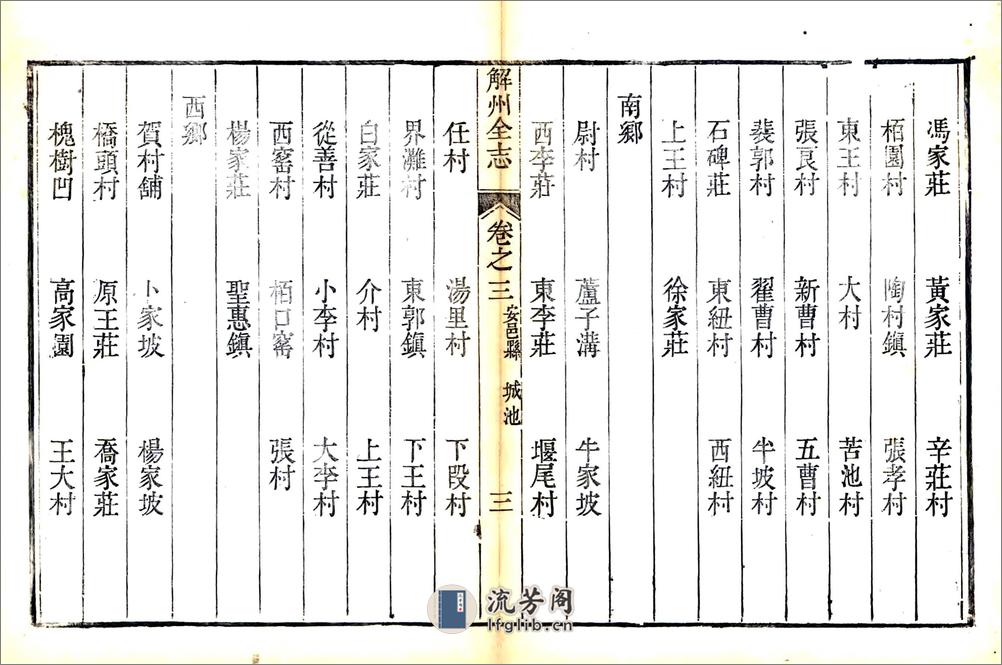 馮家莊 黃家莊 辛莊村
栢園村 陶村鎮 張孝村
東王村 大村 苦池村
張良村 新曹村 五曹村
裴郭村 翟曹村 半坡村
石碑莊 東紐村 西紐村
上王村 徐家莊
南鄉
尉村 蘆子溝 牛家坡
西李莊 東李莊 堰尾村
解州全志 卷之三 安邑縣 城池 三
任村 湯里村 下段村
界灘村 東郭鎮 下王村
白家莊 介村 上王村
從善村 小李村 大李村
西窰村 栢口窰 張村
楊家莊 聖惠鎮
西鄉
賀村舖 卜家坡 楊家坡
橋頭村 原王莊 喬家莊
槐樹凹 高家園 王大村
流芳阁
lfglib.cn